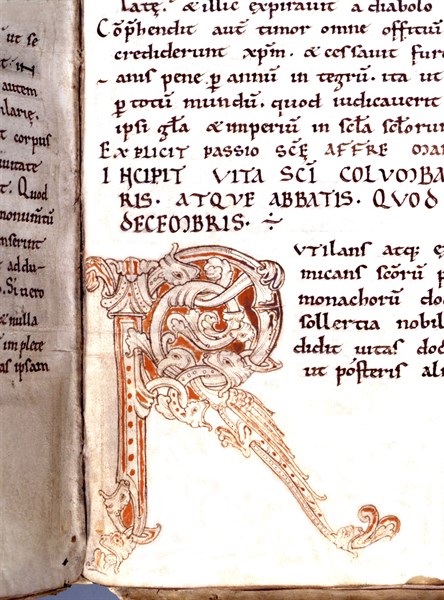 ut se
autem
ilarię.
t corpus
uitate
t. Quod
monumtū
nserunt
t addu-
. Si uero
& nulla
im plete
as ipsam
latę. & illic expirauit a diabolo
Cōp̄hendit aut̄ timor omne offitiū
crediderunt xp̄m. & cessauit furo
anis pene p̱ annū in tegrū. ita ut
p̱ totū mundū. quod iudicauerit
ipsi gl̄a & imperiū in sc̄la sc̄lorum
EXPLICIT PASSIO SCĘ AFFRE MAR
INCIPIT VITA SCĪ COLVMBA
RIS. ATQVE ABBATIS. QVOD
DECEMBRIS. ÷
RVTILANS atq; e
micans sc̄orū p
monachorū do
sollertia nobil
didit uitas doc
ut pōsteris ali